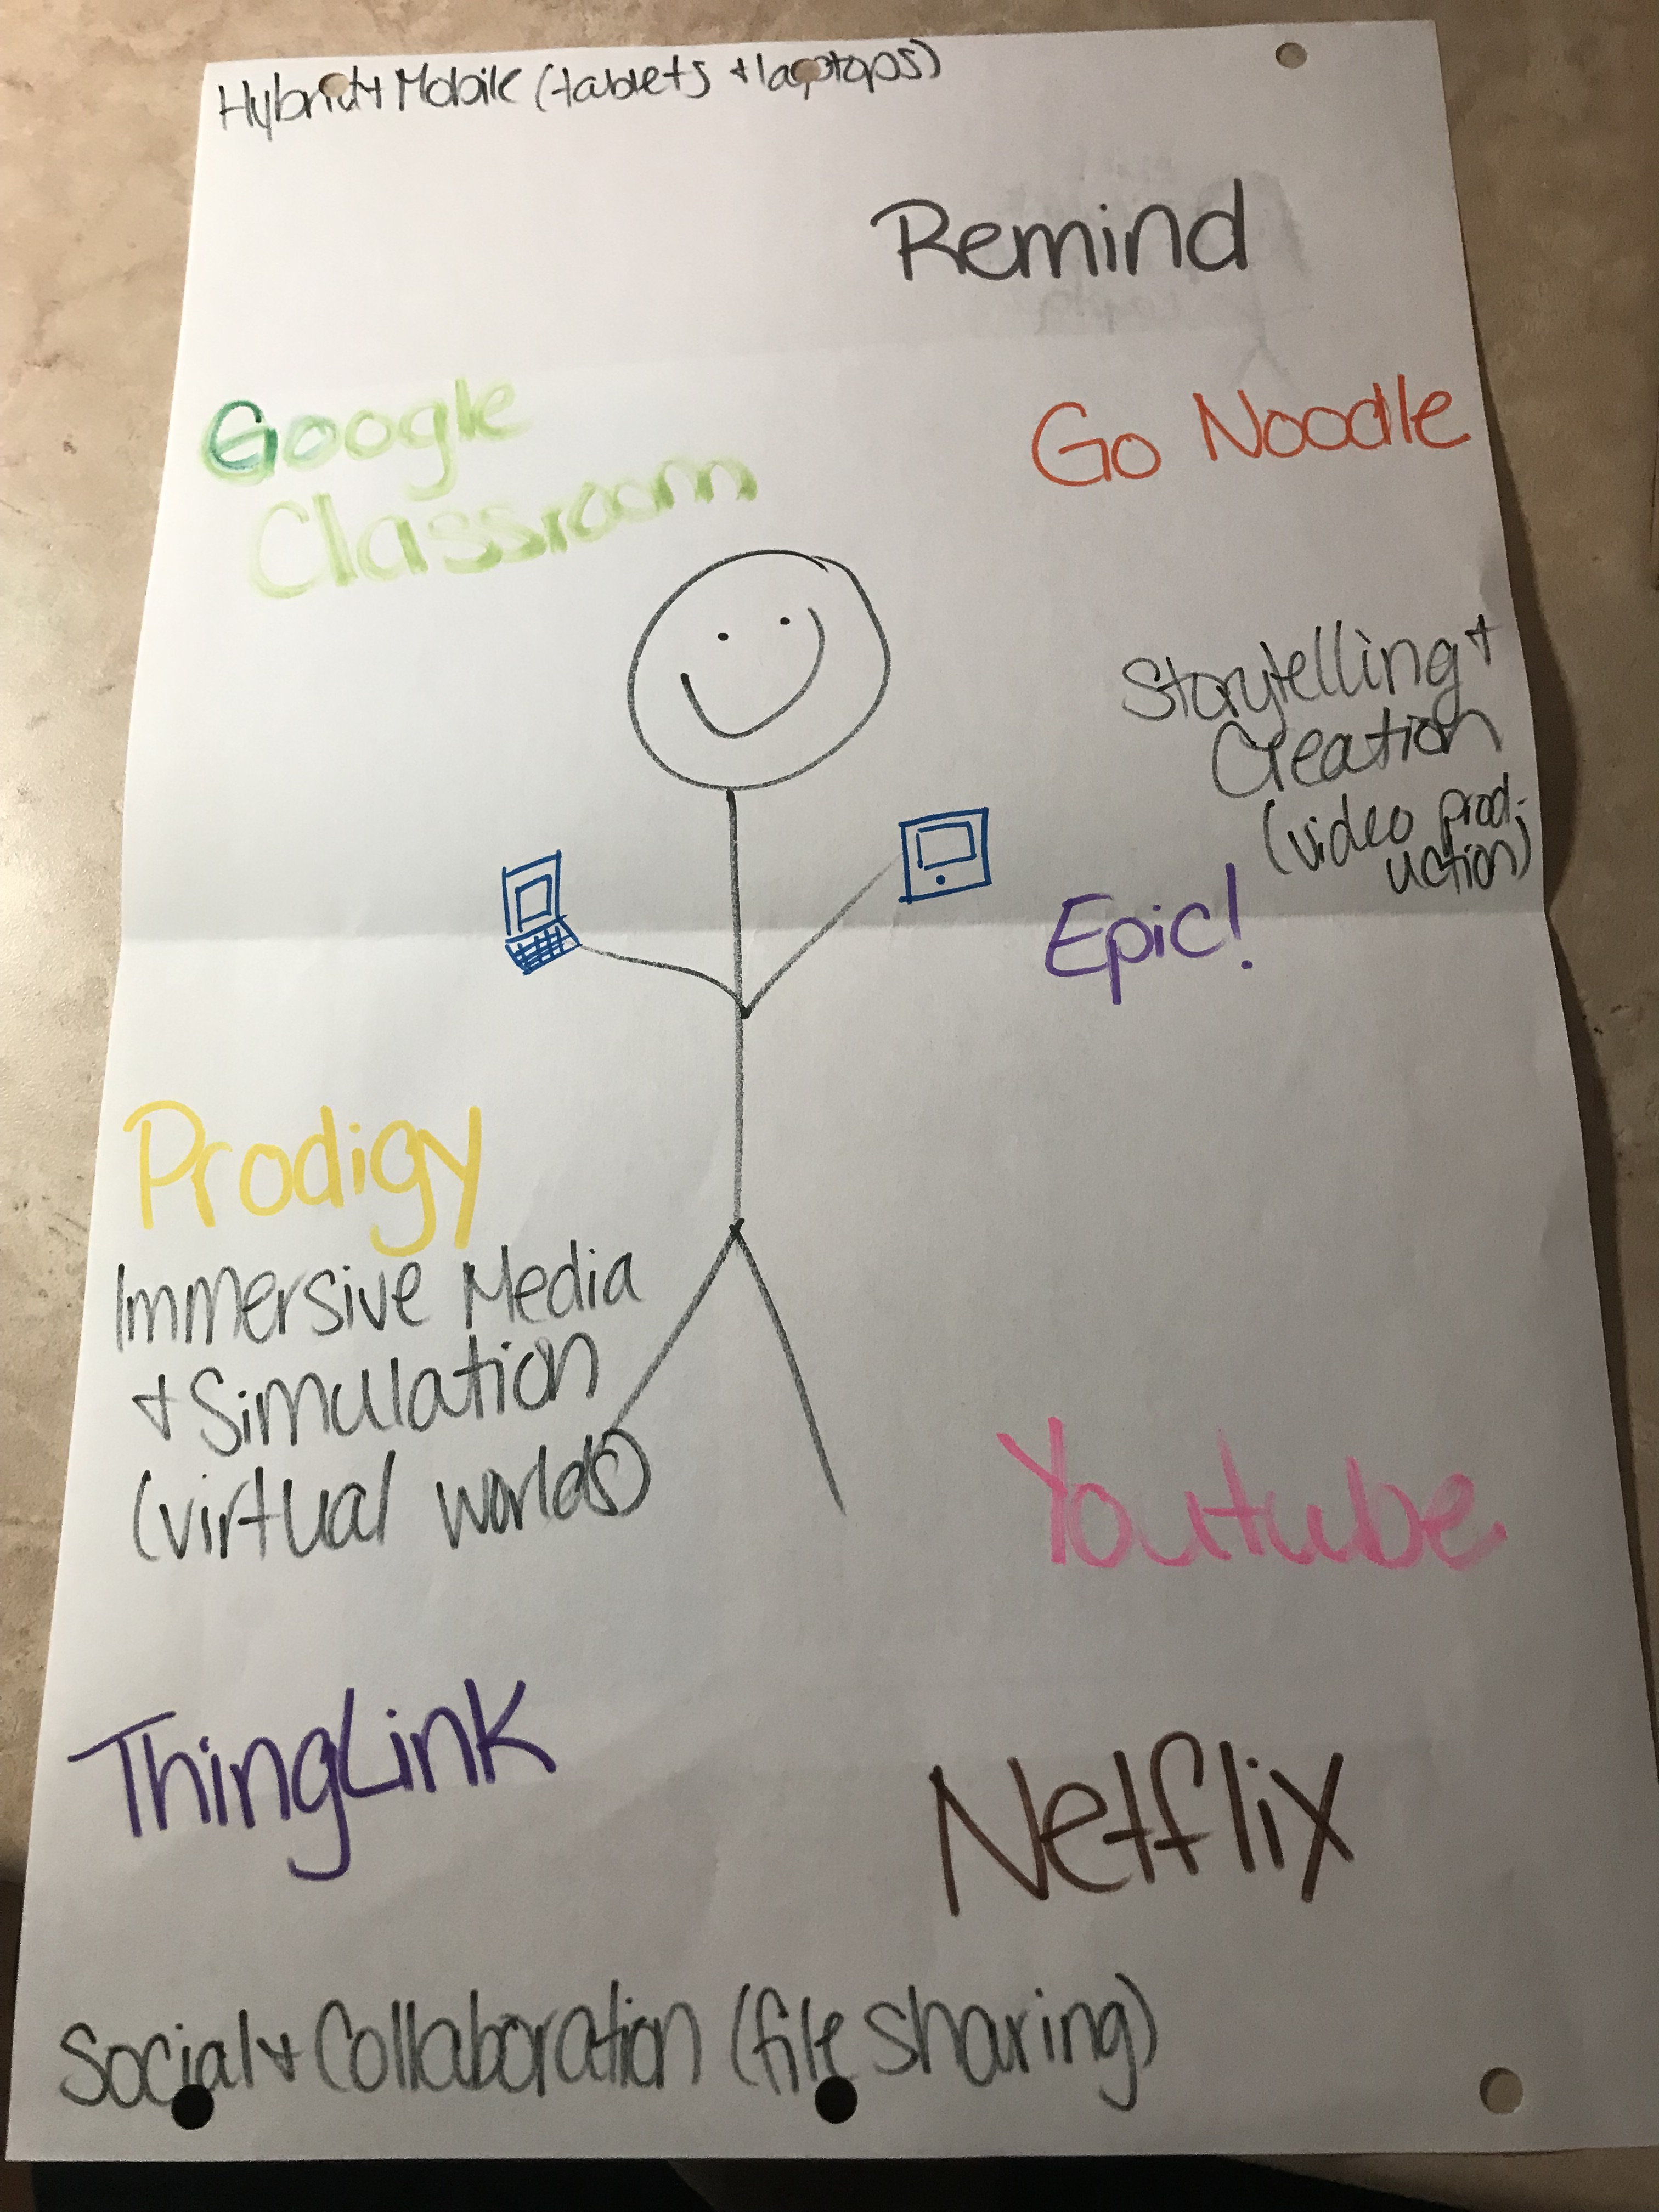 Hybrid + Mobile (tablets + laptops)
Remind
Google
Classroom
Go Noodle
Storytelling +
Creation
(video prod-
uction)
Epic!
Prodigy
Immersive Media
+ Simulation
(virtual worlds)
Youtube
ThingLink
Netflix
Social + Collaboration (file sharing)